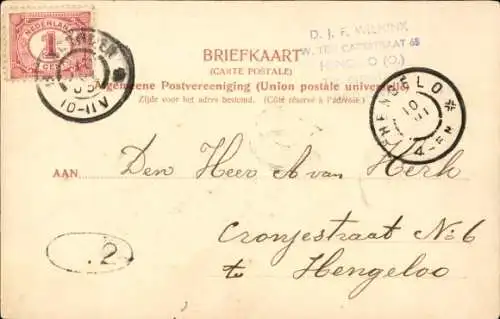 NEDERLAND
1
CENT
D. J. F. WILMINK
HENGELO (O.)
BRIEFKAART
(CARTE POSTALE)
Algemeene Postvereeniging (Union postale universelle)
Zijde voor het adres bestemd. (Côté réservé à l'adresse.)
10-11V
HENGELO
10
4-5N
AAN Den Heer A van Herk
Cronjestraat No 6
te Hengeloo
.2